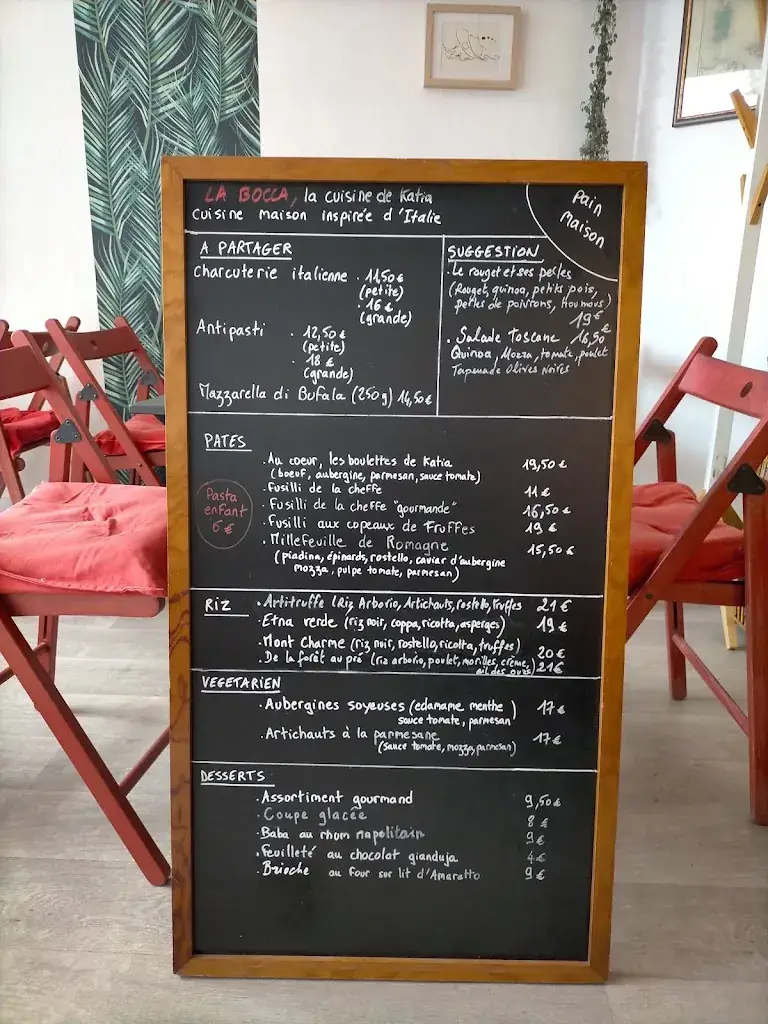 LA BOCCA, la cuisine de Katia
Cuisine maison inspirée d'Italie
Pain
maison
A PARTAGER
Charcuterie italienne . 11,50 €
(petite)
. 16 €
(grande)
Antipasti . 12,50 €
(petite)
. 18 €
(grande)
Mazzarella di Bufala (250g) 14,50€
SUGGESTION
. Le rouget et ses perles
(Rouget, quinoa, petits pois,
perles de poivrons, Houmous)
19€
. Salade Toscane 16,50 €
Quinoa, Mozza, tomate, poulet
Tapenade Olives Noires
PATES
. Au coeur, les boulettes de Katia 19,50 €
(boeuf, aubergine, parmesan, sauce tomate)
. Fusilli de la cheffe 11 €
. Fusilli de la cheffe "gourmande" 16,50 €
. Fusilli aux copeaux de Truffes 19 €
. Millefeuille de Romagne 15,50 €
(piadina, épinards, rostello, caviar d'aubergine
mozza, pulpe tomate, parmesan)
Pasta
enfant
6 €
RIZ
. Artitruffe (Riz Arborio, Artichauts, rostello, truffes 21 €
. Etna verde (riz noir, coppa, ricotta, asperges) 19 €
. Mont Charme (riz noir, rostello, ricotta, truffes) 20 €
. De la forêt au pré (riz arborio, poulet, morilles, crème, 21€
ail des ours)
VEGETARIEN
. Aubergines soyeuses (edamame menthe ) 17 €
sauce tomate, parmesan
. Artichauts à la parmesane 17 €
(sauce tomate, mozza, parmesan)
DESSERTS
. Assortiment gourmand 9,50€
. Coupe glacée 8 €
. Baba au rhum napolitain 9€
. Feuilleté au chocolat gianduja 4€
. Brioche au four sur lit d'Amaretto 9€